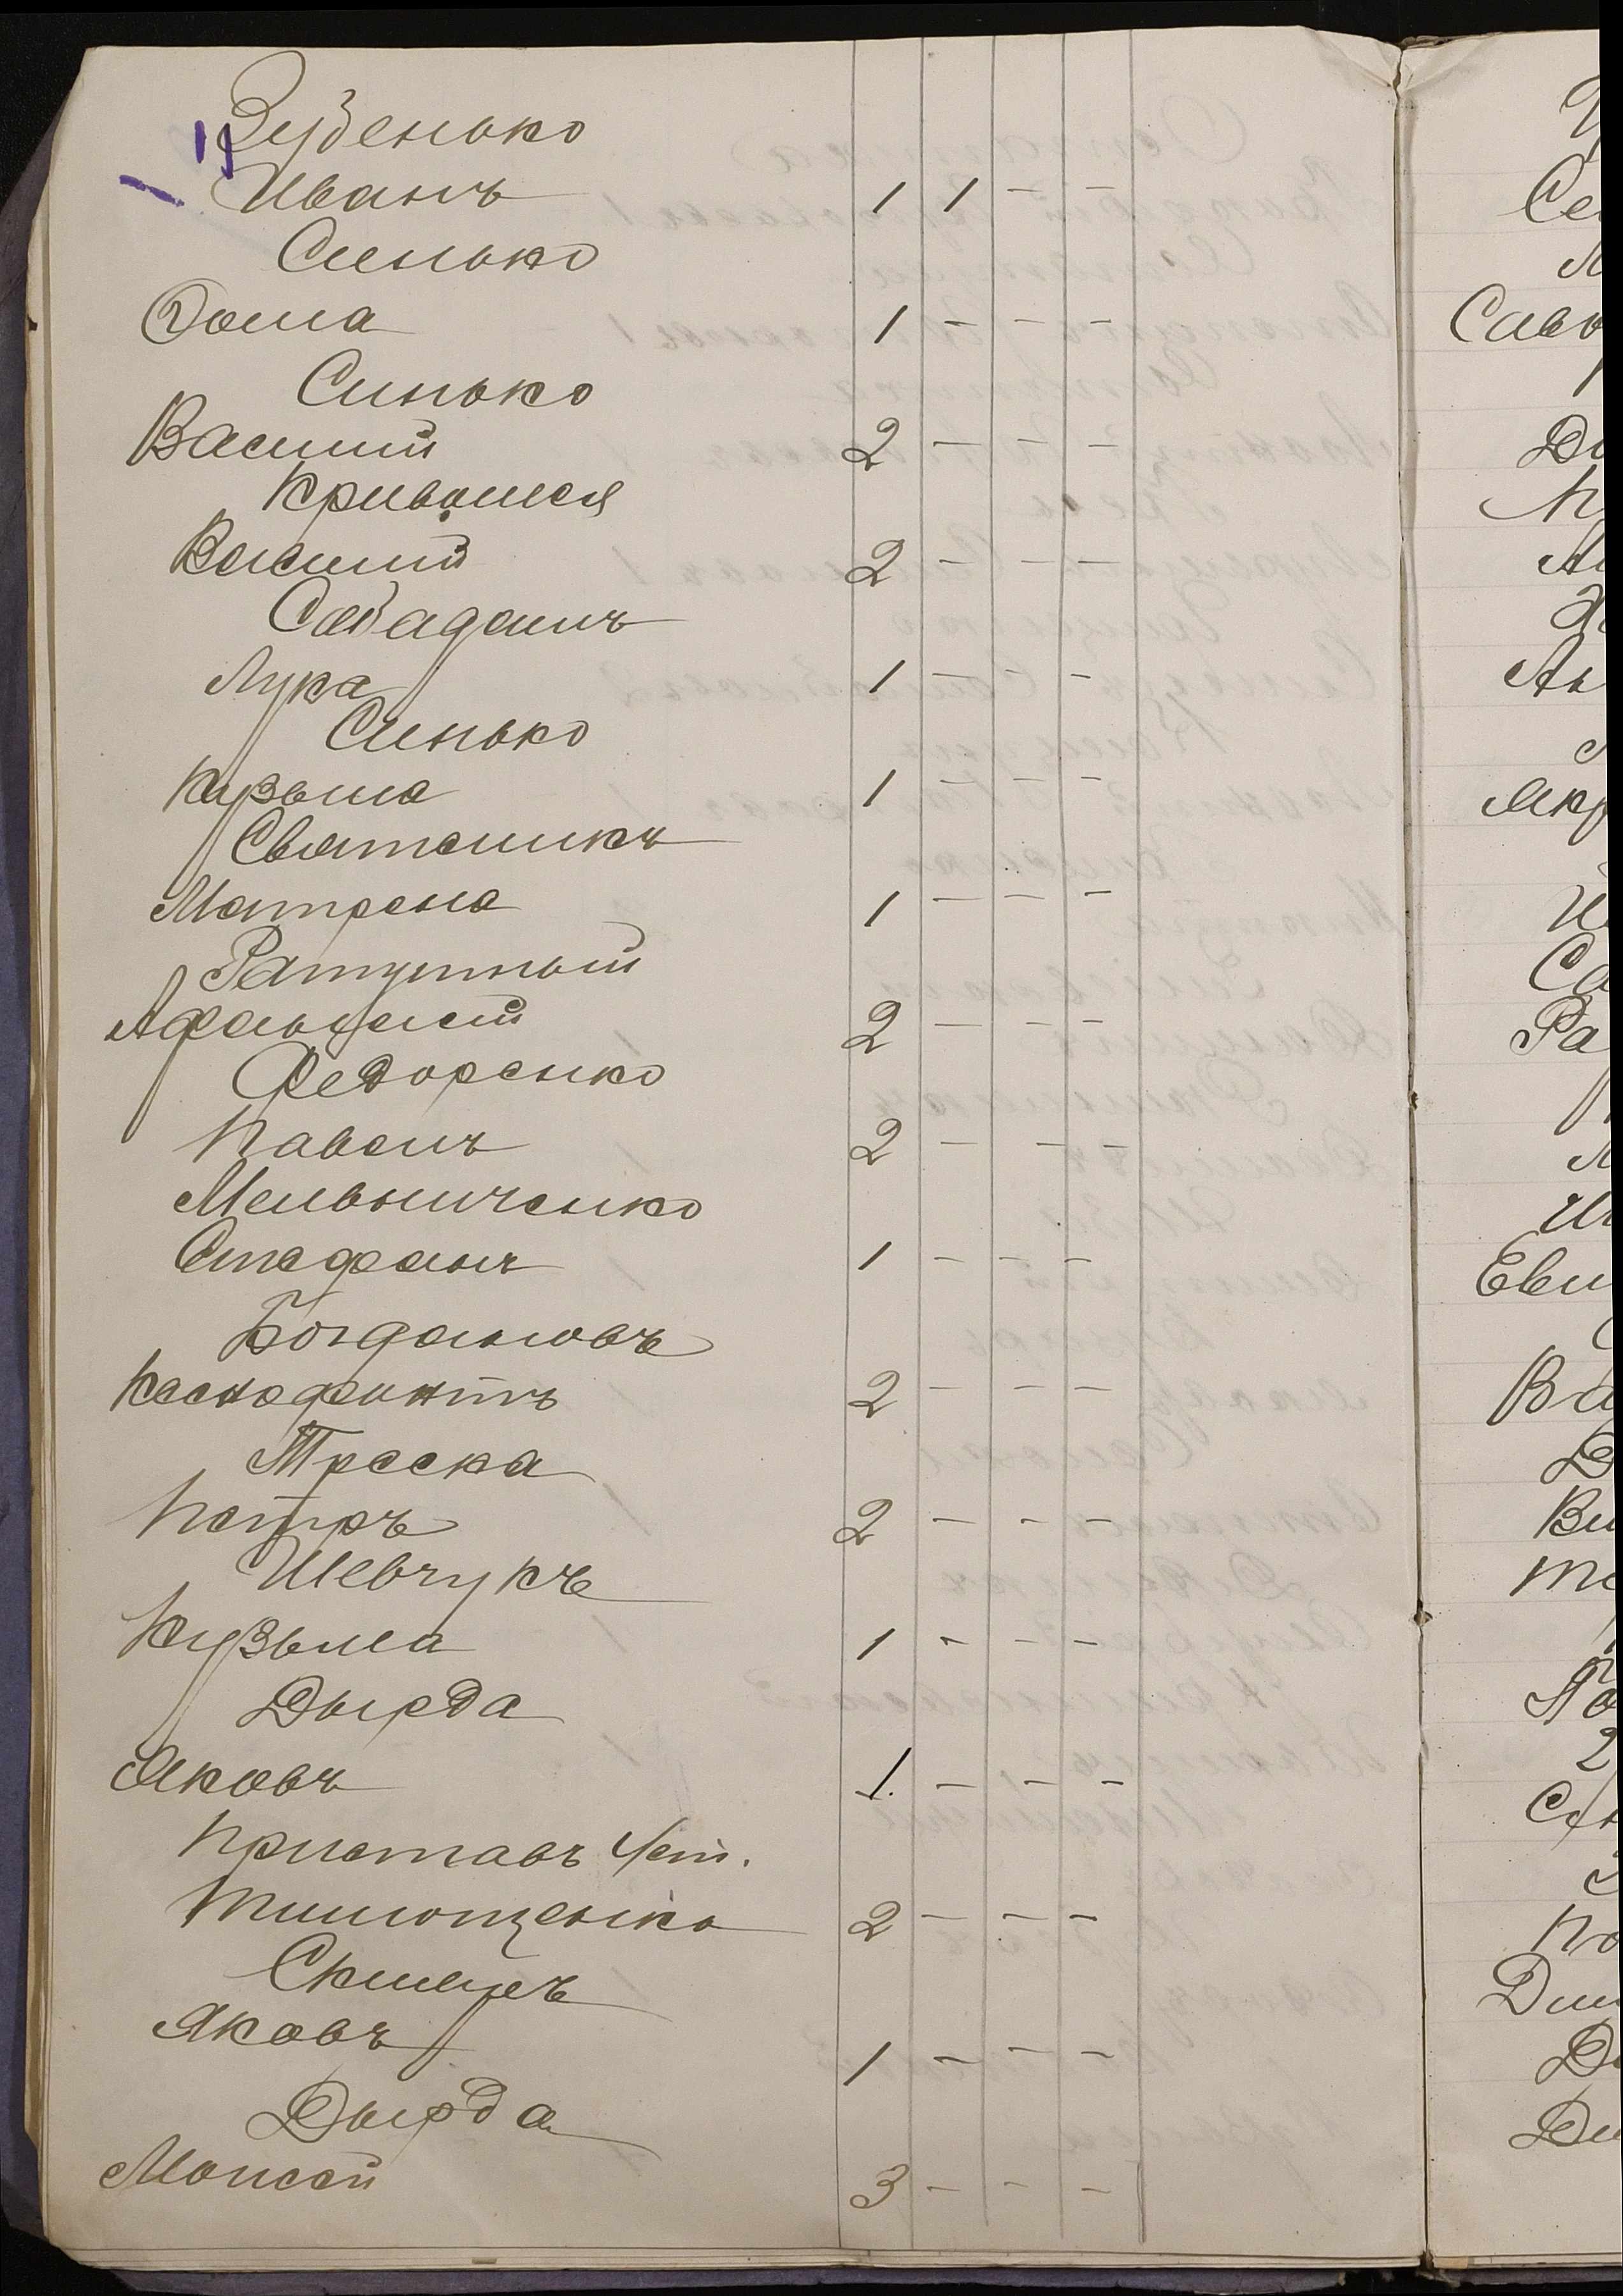 Зубенько
Иванъ 1 1 - -
Сенько
Фома 1 - - -
Синько
Василий 2 - - -
Кривошея
Василий 2 - - -
Сабадашъ
Лука 1 - - -
Синько
Кузьма 1 - - -
Святеникъ
Матрена 1 - - -
Ратушный
Афанасий 2 - - -
Федоренко
Павелъ 2 - - -
Мельниченко
Стефанъ 1 - - -
Богдановъ
Ксенофонтъ 2 - - -
Треска
Петръ 2 - - -
Шевчукъ
Кузьма 1 - - -
Дырда
Яковъ 1. - - -
Приставъ
Тимощенко 2 - - -
Яковъ 1 - - -
Дырда
Моисей 3 - - -